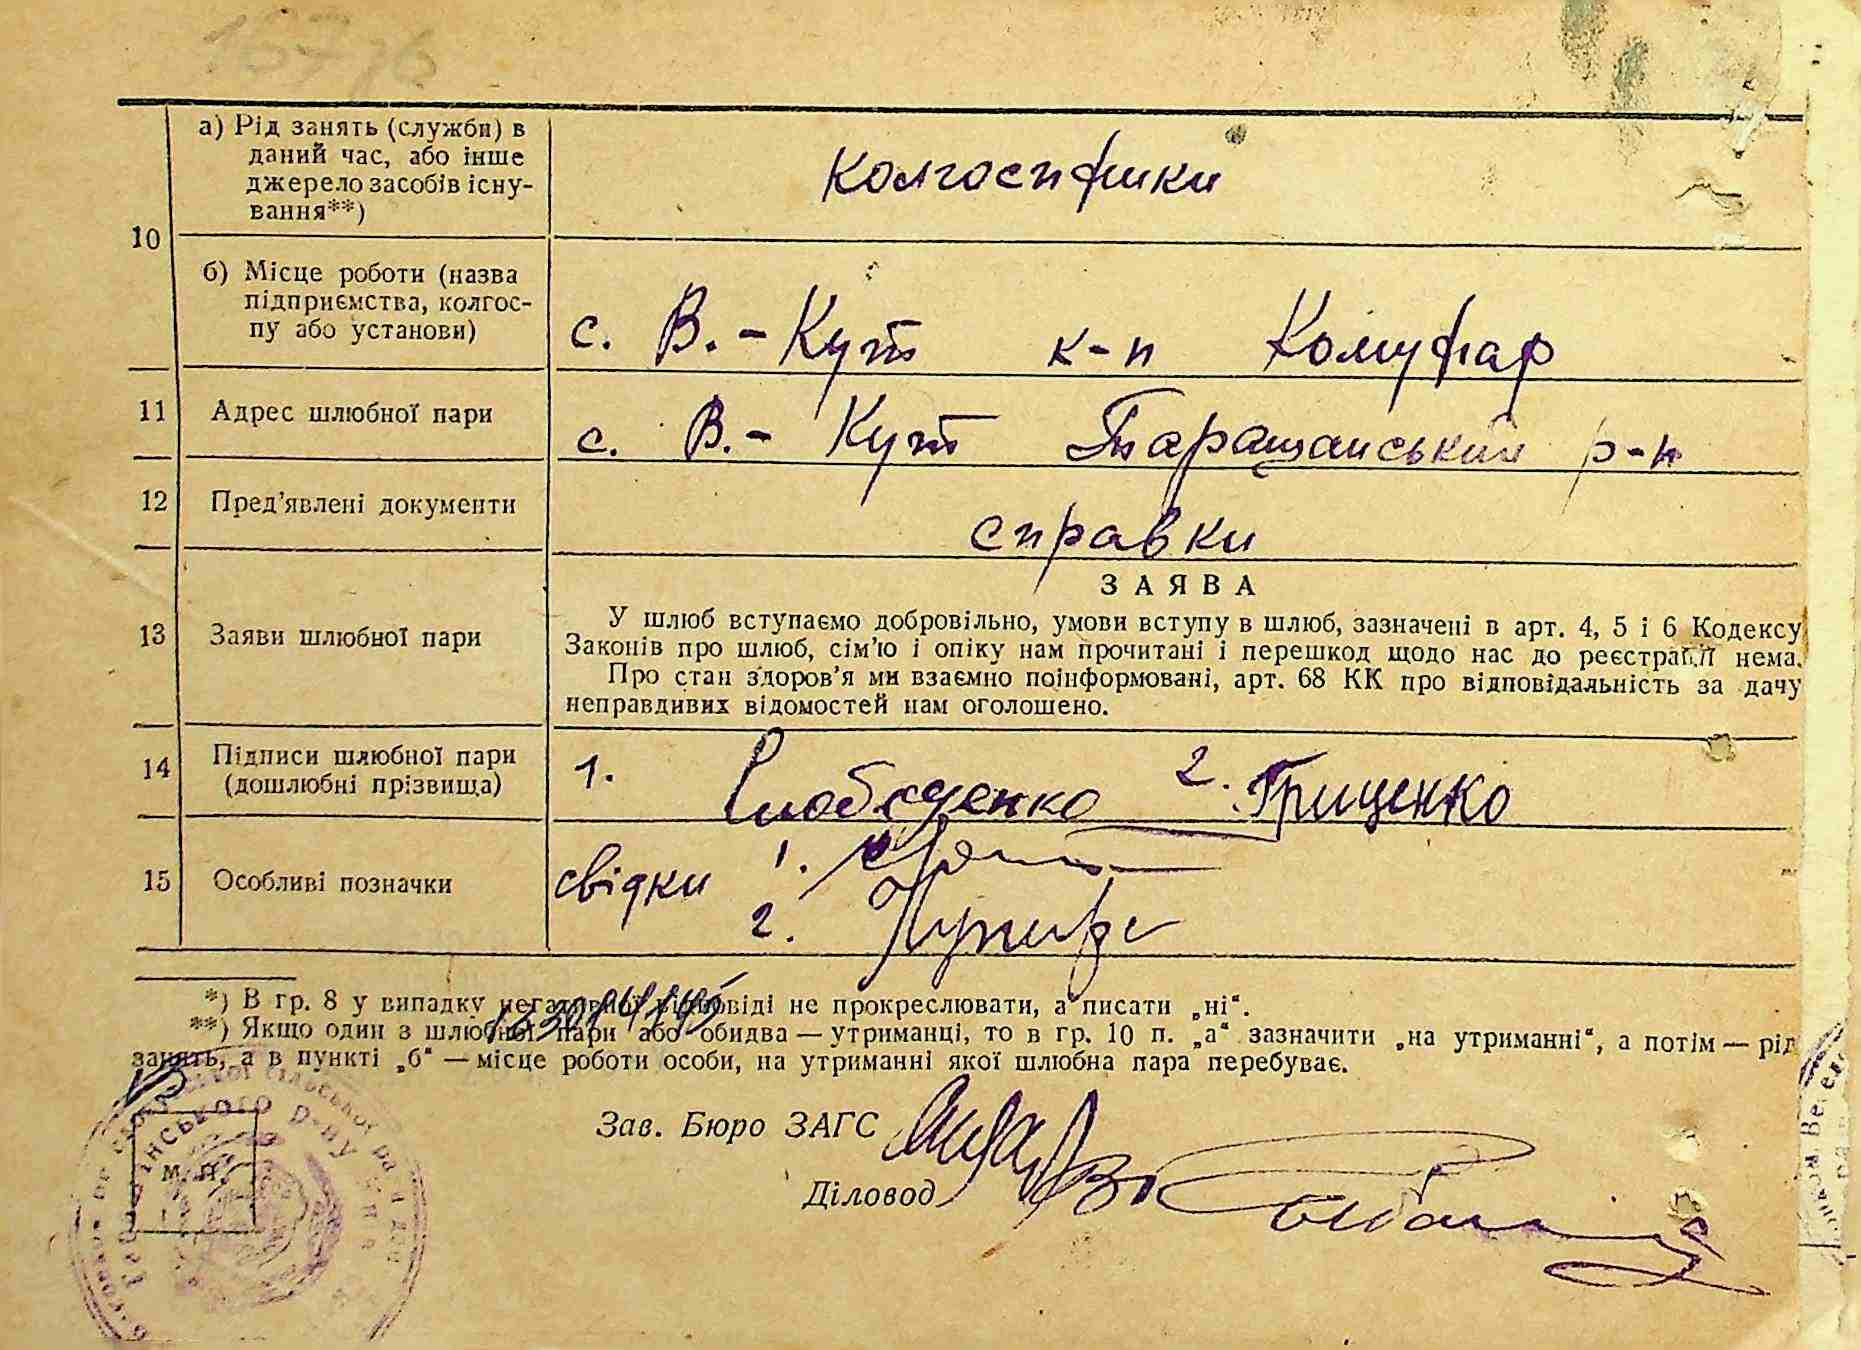 а) Рід занять (служби) в
даний час, або інше
джерело засобів існу-
вання**)
колгоспники
10
б) Місце роботи (назва
підприємства, колгос-
пу або установи)
с. В.-Кут к-п Комунар
11 Адрес шлюбної пари
с. В.-Кут Таращанський р-н
12 Пред’явлені документи
справки
13 Заяви шлюбної пари
ЗАЯВА
У шлюб вступаємо добровільно, умови вступу в шлюб, зазначені в арт. 4, 5 і 6 Кодексу
Законів про шлюб, сім’ю і опіку нам прочитані і перешкод щодо нас до реєстрації нема.
Про стан здоров’я ми взаємно поінформовані, арт. 68 КК про відповідальність за дачу
неправдивих відомостей нам оголошено.
14 Підписи шлюбної пари
(дошлюбні прізвища)
1. Слободенко 2. Гриценко
15 Особливі позначки
свідки 1.
2.
*) В гр. 8 у випадку негативної відповіді не прокреслювати, а писати „ні“.
**) Якщо один з шлюбної пари або обидва — утриманці, то в гр. 10 п. „а“ зазначити „на утриманні“, а потім — рід
занять, а в пункті „б“ — місце роботи особи, на утриманні якої шлюбна пара перебуває.
Зав. Бюро ЗАГС
Діловод
М. П.